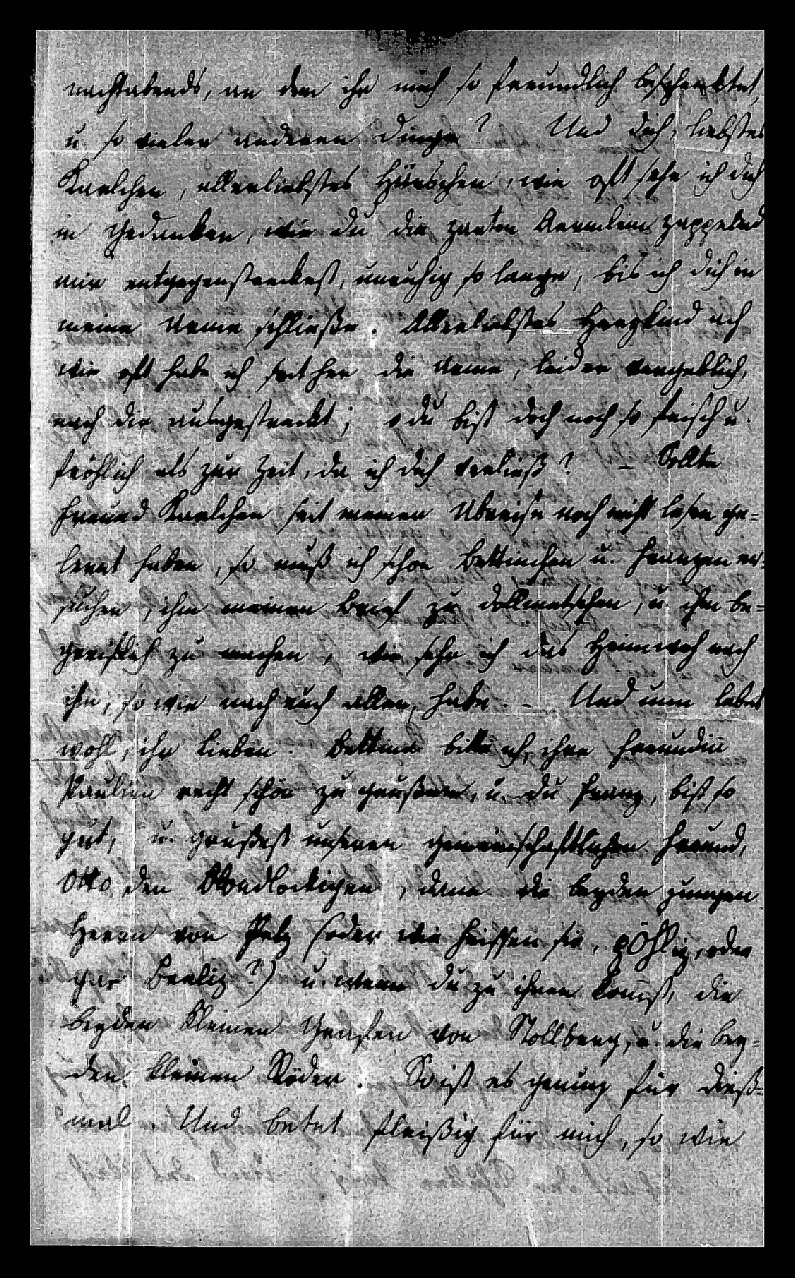 nachtabends, an dem ihr mich so freundlich beschenktet,
u. so vieler anderen Dinge? Und dich, liebstes
Karlchen, allerliebstes Häuschen, wie oft sehe ich dich
in Gedanken, wie du die zarten Aermlein zappelnd
mir entgegenstreckest, unruhig so lange, bis ich dich in
meine Arme schließe. Allerliebstes Herzkind ach
wie oft habe ich seither die Arme, leider vergeblich,
nach dir ausgestreckt; o du bist doch noch so frisch u.
fröhlich als zur Zeit, da ich dich verließ? – Sollte
Freund Karlchen seit meiner Abreise noch nicht lesen ge=
lernt haben, so muß ich schon Bettinchen u. Franzen er=
suchen, ihm meinen Brief zu dollmetschen, u. ihm be=
greiflich zu machen, wie sehr ich das Heimweh nach
ihm, so wie nach euch allen, habe. – Und nun lebet
wohl, ihr lieben. Bettina bitte ich, ihre Freundin
Paulina recht schön zu grüßen, u. du Franz, bist so
gut, u. grüßest unseren gemeinschaftlichen Freund,
Otto den Blondlockigen, dann die beyden jungen
Herrn von Pelz (oder wie heissen sie, , oder
gar Beeliz?) u. wenn du zu ihnen kommst, die
beyden kleinen Grafen von Stollberg, u. die bey=
den kleinen Röder. So ist es genung für dieß=
mal. Und betet fleißig für mich, so wie